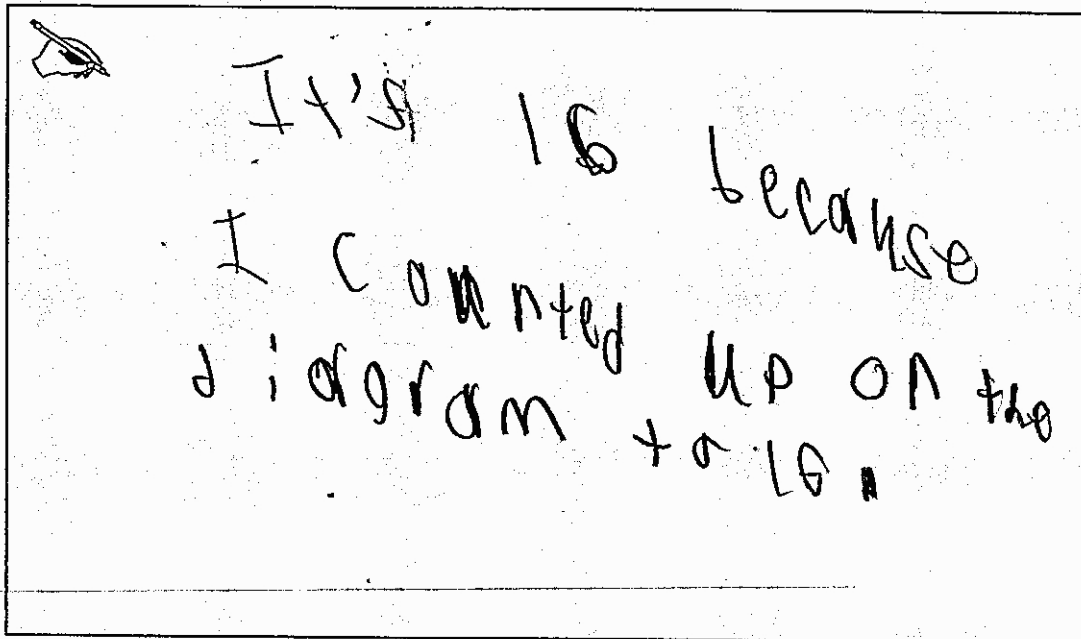 It's 16 because
I counted up on the
diagram to 16.